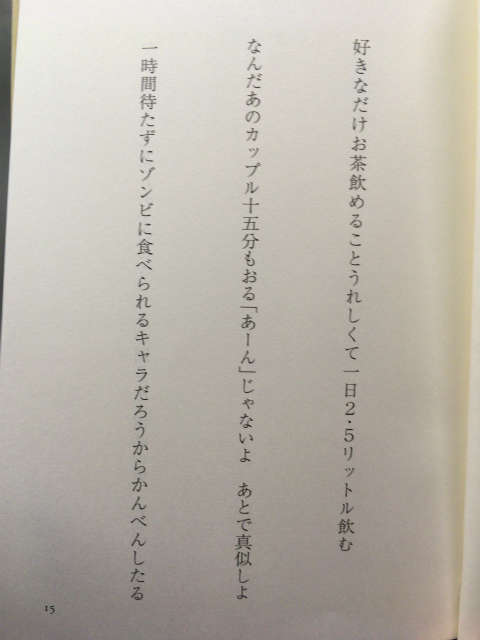 好きなだけお茶飲めることうれしくて一日2・5リットル飲む
なんだあのカップル十五分もおる「あーん」じゃないよ　あとで真似しよ
一時間待たずにゾンビに食べられるキャラだろうからかんべんしたる
15